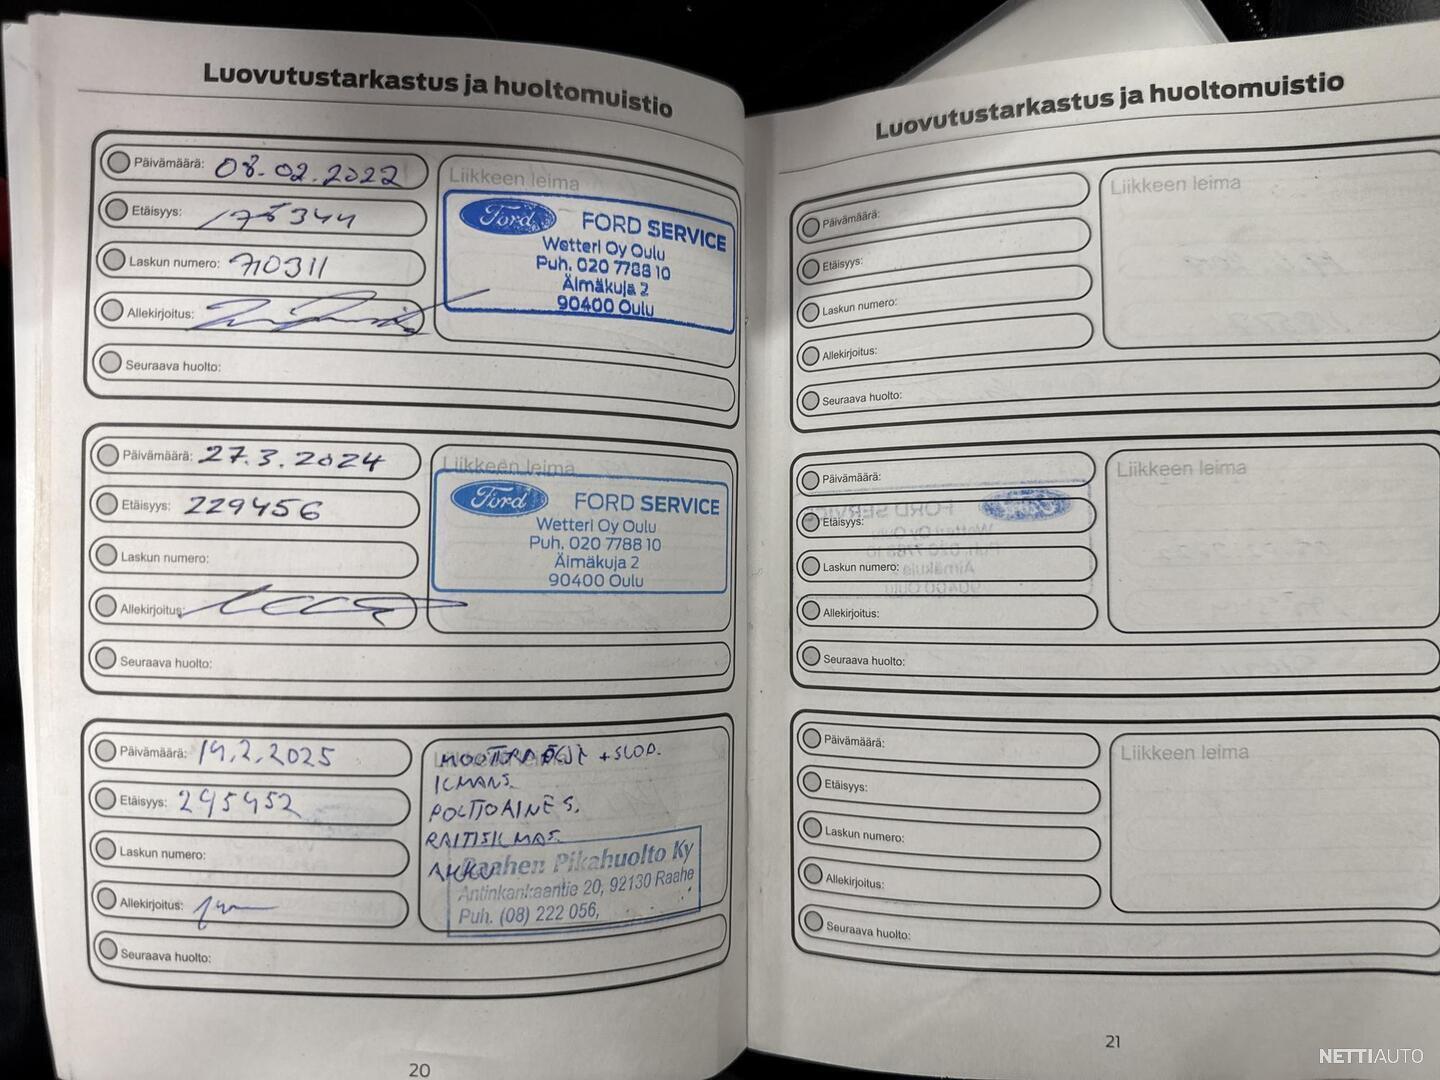 Luovutustarkastus ja huoltomuistio
Päivämäärä: 08.02.2022
Etäisyys: 175344
Laskun numero: 710311
Allekirjoitus:
Seuraava huolto:
Liikkeen leima
Ford FORD SERVICE
Wetteri Oy Oulu
Puh. 020 7788 10
Älmäkuja 2
90400 Oulu
Päivämäärä: 27.3.2024
Etäisyys: 229456
Laskun numero:
Allekirjoitus:
Seuraava huolto:
Liikkeen leima
Ford FORD SERVICE
Wetteri Oy Oulu
Puh. 020 7788 10
Äimäkuja 2
90400 Oulu
Päivämäärä: 14.2.2025
Etäisyys: 245452
Laskun numero:
Allekirjoitus:
Seuraava huolto:
+SUOD.
ILMANS.
POLTTOAINE S.
RAITISILMAS.
AKKU
Raahen Pikahuolto Ky
Antinkankaantie 20, 92130 Raahe
Puh. (08) 222 056,
20
Luovutustarkastus ja huoltomuistio
Päivämäärä:
Etäisyys:
Laskun numero:
Allekirjoitus:
Seuraava huolto:
Liikkeen leima
Päivämäärä:
Etäisyys:
Laskun numero:
Allekirjoitus:
Seuraava huolto:
Liikkeen leima
Päivämäärä:
Etäisyys:
Laskun numero:
Allekirjoitus:
Seuraava huolto:
Liikkeen leima
21
NETTIAUTO